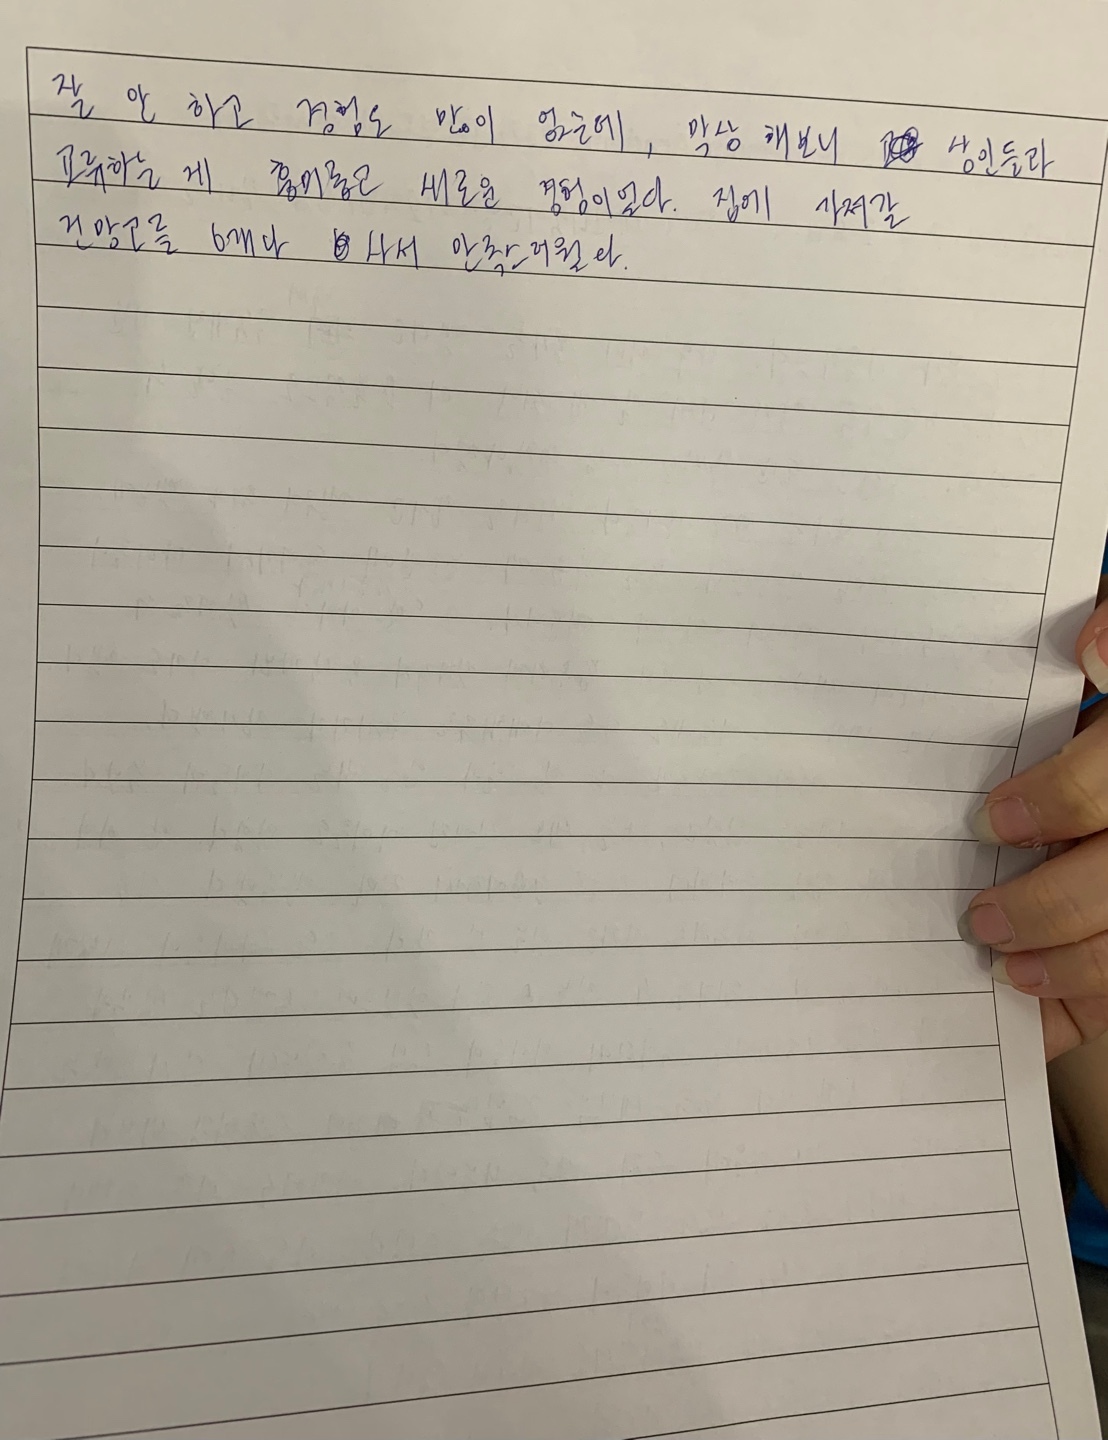 잘 안 하고 경험도 많이 없는데, 막상 해보니 상인들과
교류하는 게 흥미롭고 새로운 경험이었다. 집에 가져갈
건망고를 6개나 사서 만족스러웠다.